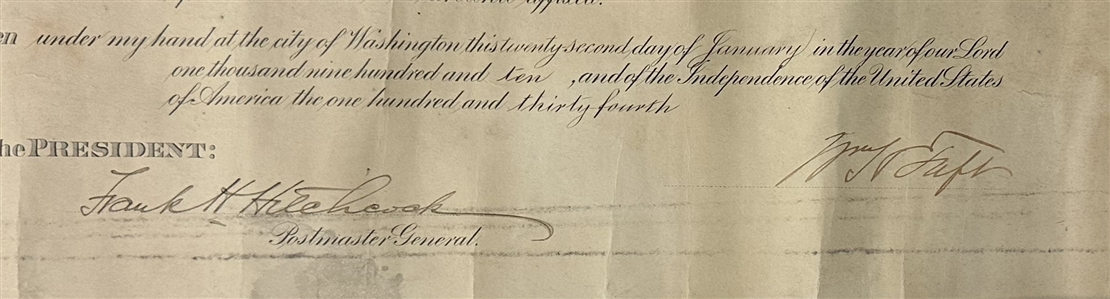 affixed.
en under my hand at the city of Washington this twenty second day of January in the year of our Lord
one thousand nine hundred and ten , and of the Independence of the United States
of America the one hundred and thirty fourth
he PRESIDENT:
Wm H Taft
Frank H Hitchcock
Postmaster General.